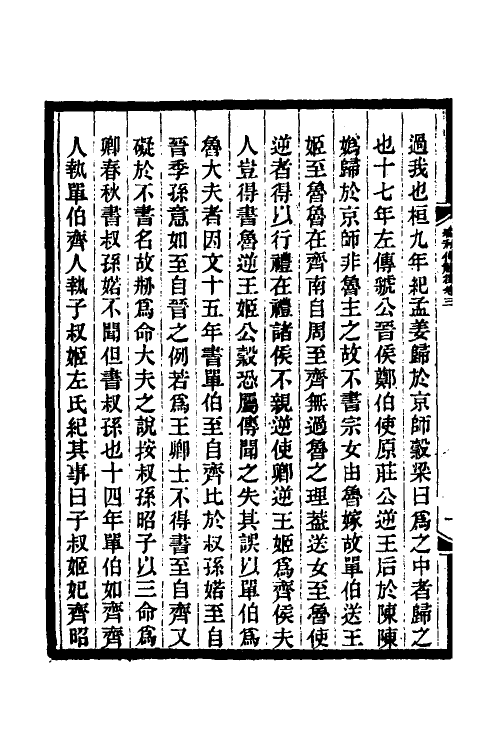 過我也桓九年紀孟姜歸於京師穀梁曰爲之中者歸之
也十七年左傳虢公晉侯鄭伯使原莊公逆王后於陳陳
嬀歸於京師非魯主之故不書宗女由魯嫁故單伯送王
姬至魯魯在齊南自周至齊無過魯之理葢送女至魯使
逆者得以行禮在禮諸侯不親逆使卿逆王姬爲齊侯夫
人豈得書魯逆王姬公穀恐屬傳聞之失其誤以單伯爲
魯大夫者因文十五年書單伯至自齊比於叔孫婼至自
晉季孫意如至自晉之例若爲王卿士不得書至自齊又
礙於不書名故刱爲命大夫之說按叔孫昭子以三命爲
卿春秋書叔孫婼不聞但書叔孫也十四年單伯如齊齊
人執單伯齊人執子叔姬左氏紀其事曰子叔姬妃齊昭